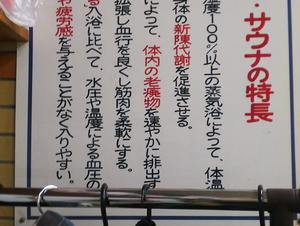 ・サウナの特長
度100%以上の蒸気浴によって、体温
身体の新陳代謝を促進させる。
によって、体内の老廃物を速やかに排出す
拡張し血行を良くし筋肉を柔軟にする。
る入浴に比べて、水圧や温度による血圧の
や疲労感を与えることがなく入りやすい。